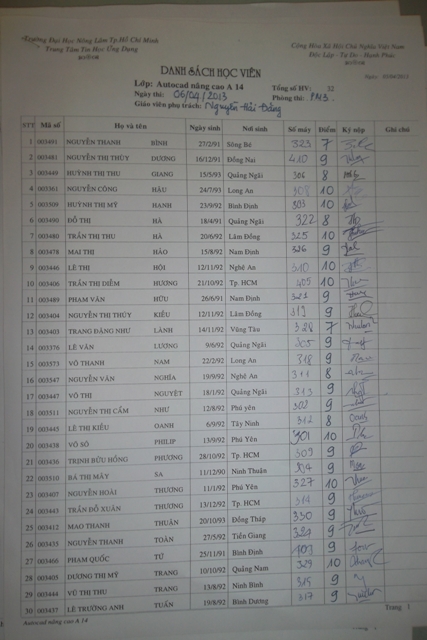 Trường Đại Học Nông Lâm Tp.Hồ Chí Minh
Trung Tâm Tin Học Ứng Dụng
Cộng Hòa Xã Hội Chủ Nghĩa Việt Nam
Độc Lập - Tự Do - Hạnh Phúc
DANH SÁCH HỌC VIÊN
Lớp: Autocad nâng cao A 14 Tổng số HV: 32
Ngày thi: 06/04/2013 Phòng thi: PM3
Giáo viên phụ trách: Nguyễn Hải Đăng
STT Mã số Họ và tên Ngày sinh Nơi sinh Số máy Điểm Ký nộp Ghi chú
1 003491 NGUYỄN THANH BÌNH 27/2/91 Sông Bé 323 7
2 003481 NGUYỄN THỊ THÙY DƯƠNG 16/12/91 Đồng Nai 410 9
3 003449 HUỲNH THỊ THU GIANG 15/5/93 Quảng Ngãi 306 8
4 003361 NGUYỄN CÔNG HẬU 24/7/93 Long An 10
5 003509 HUỲNH THỊ MỸ HẠNH 23/9/92 Bình Định 303 10
6 003490 ĐỖ THỊ HÀ 18/4/91 Quảng Ngãi 322 8
7 003480 TRẦN THỊ THU HÀ 20/6/92 Lâm Đồng 325 10
8 003478 MAI THỊ HẢO 15/8/92 Nam Định 326 9
9 003446 LÊ THỊ HỘI 12/11/92 Nghệ An 310 10
10 003406 TRẦN THỊ DIỄM HƯƠNG 21/10/92 Tp. HCM 405 10
11 003489 PHẠM VĂN HỮU 26/6/91 Nam Định 9
12 003404 NGUYỄN THỊ THÚY KIỀU 12/11/92 Lâm Đồng 319 9
13 003403 TRANG ĐĂNG NHƯ LÀNH 14/11/92 Vũng Tàu 328 7
14 003376 LÊ VĂN LƯỢNG 9/6/92 Quảng Ngãi 305 9
15 003573 VÕ THANH NAM 22/2/92 Long An 318 9
16 003547 NGUYỄN VĂN NGHĨA 19/9/92 Nghệ An 311 8
17 003447 VÕ THỊ NGUYỆT 18/1/92 Quảng Ngãi 313 9
18 003511 NGUYỄN THỊ CẨM NHƯ 12/8/92 Phú yên 302 9
19 003445 LÊ THỊ KIỀU OANH 6/9/92 Tây Ninh 312 8 Oanh
20 003438 VÕ SÔ PHILIP 13/9/92 Phú Yên 301 10
21 003436 TRỊNH BỬU HỒNG PHƯƠNG 28/10/92 Tp. HCM 309 9
22 003510 BÁ THỊ MÂY SA 11/12/90 Ninh Thuận 304 9
23 003407 NGUYỄN HOÀI THƯƠNG 11/1/92 Phú Yên 327 10
24 003443 TRẦN ĐỖ XUÂN THƯƠNG 13/12/92 Tp. HCM 314 9
25 003412 MAO THANH THUẬN 20/10/93 Đồng Tháp 330 9
26 003435 NGUYỄN THANH TOÀN 27/5/92 Tiền Giang 9
27 003466 PHẠM QUỐC TỨ 25/11/91 Bình Định 9
28 003405 DƯƠNG THỊ MỸ TRANG 10/10/92 Quảng Nam 329 10
29 003444 VŨ THỊ THU TRANG 13/8/92 Ninh Bình 315 9
30 003437 LÊ TRƯỜNG ANH TUẤN 19/8/92 Bình Dương 317 9
Autocad nâng cao A 14
Trang 1